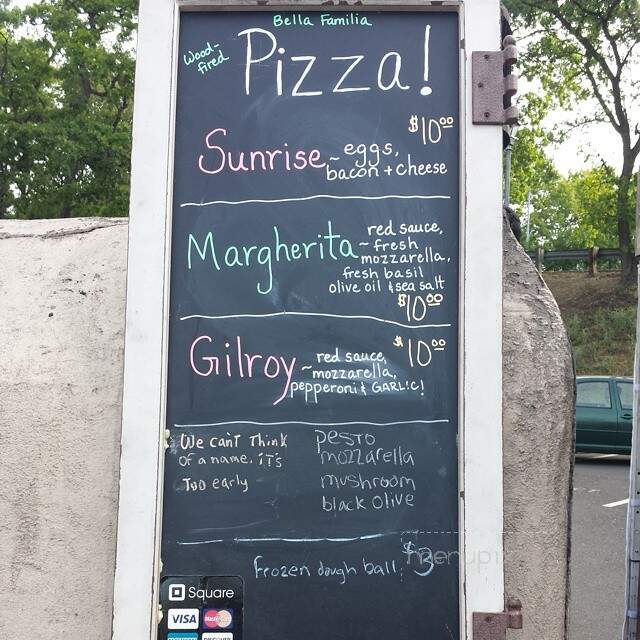 Bella Familia
Wood-
fired
Pizza!
$10⁰⁰
Sunrise ~ eggs,
bacon + cheese
Margherita ~ red sauce,
fresh
mozzarella,
fresh basil
olive oil & sea salt
$10⁰⁰
Gilroy ~ red sauce,
mozzarella,
pepperoni & GARLIC!
$10⁰⁰
We can't Think
of a name. it's
Too early
pesto
mozzarella
mushroom
black olive
frozen dough ball $3
menupi
Square
VISA
MasterCard
DISCOVER